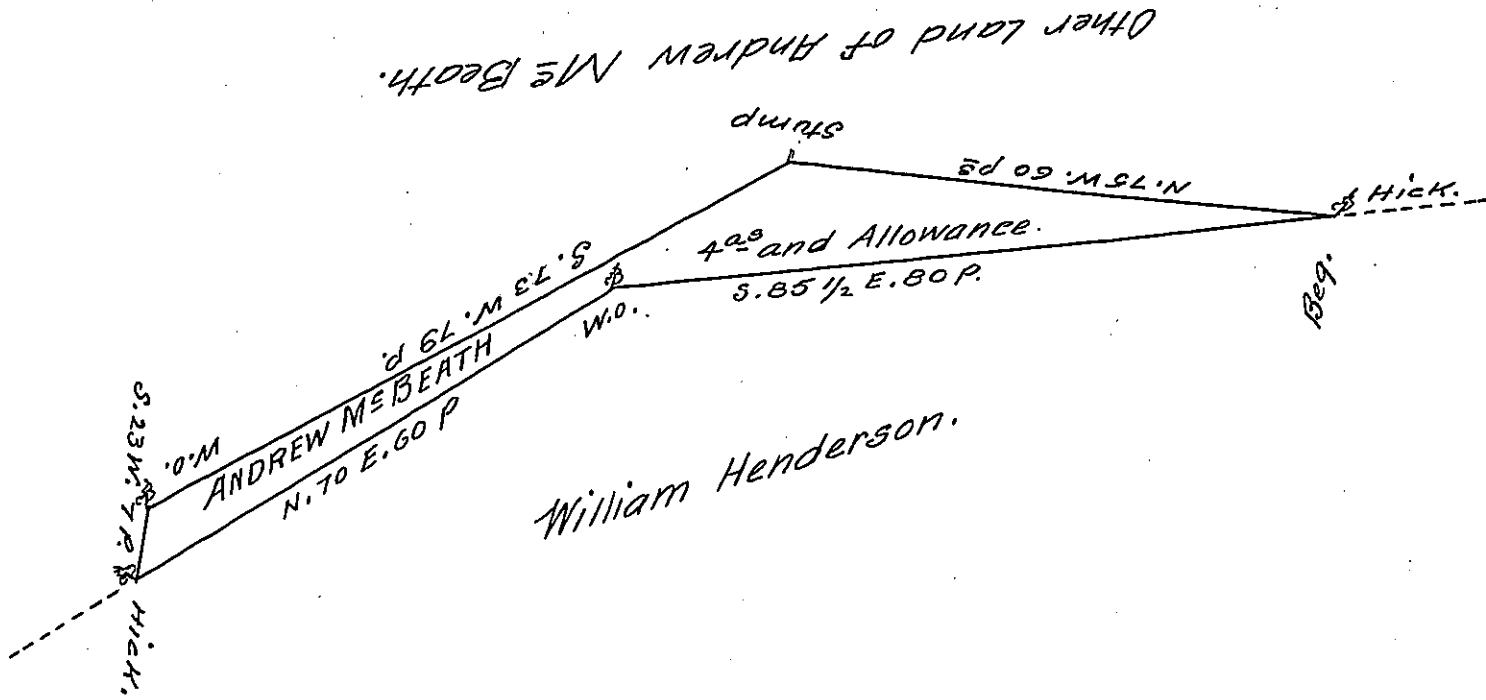 Other Land of Andrew Mc Beath.
Stump
N. 75 W. 60 ps
Hick.
Beg.
4 as and Allowance.
S. 85 1/2 E. 80 P.
S. 73 W. 79 P.
W.O.
ANDREW Mc BEATH
N. 70 E. 60 P
W.O.
S. 23 W. 7 P.
Hick.
William Henderson.